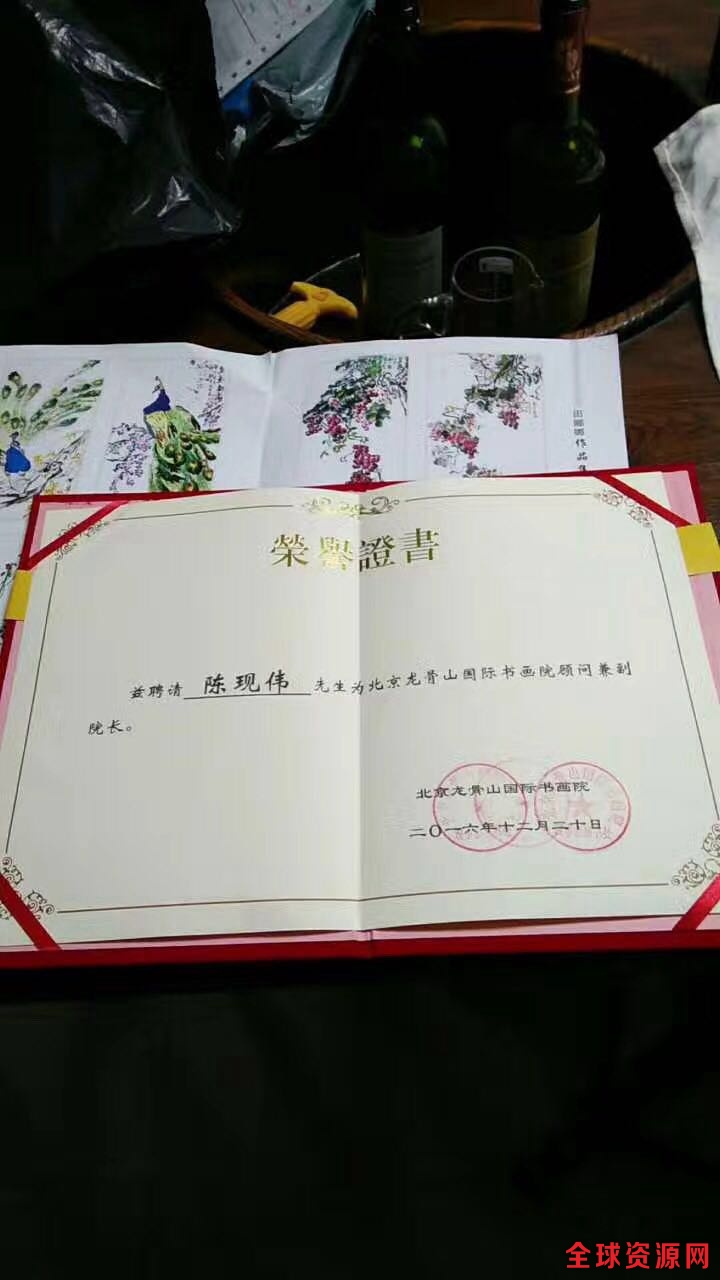 作品集
榮譽證書
兹聘请 陈现伟 先生为北京龙骨山国际书画院顾问兼副
院长。
北京龙骨山国际书画院
二〇一六年十二月二十日
全球资源网